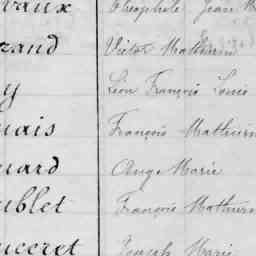 vaux Théophile Jean M
rand Victor Mathurin
y Léon François Louis
uais François Mathurin
uard Ange Marie
ublet François Mathurin
uceret Joseph Marie